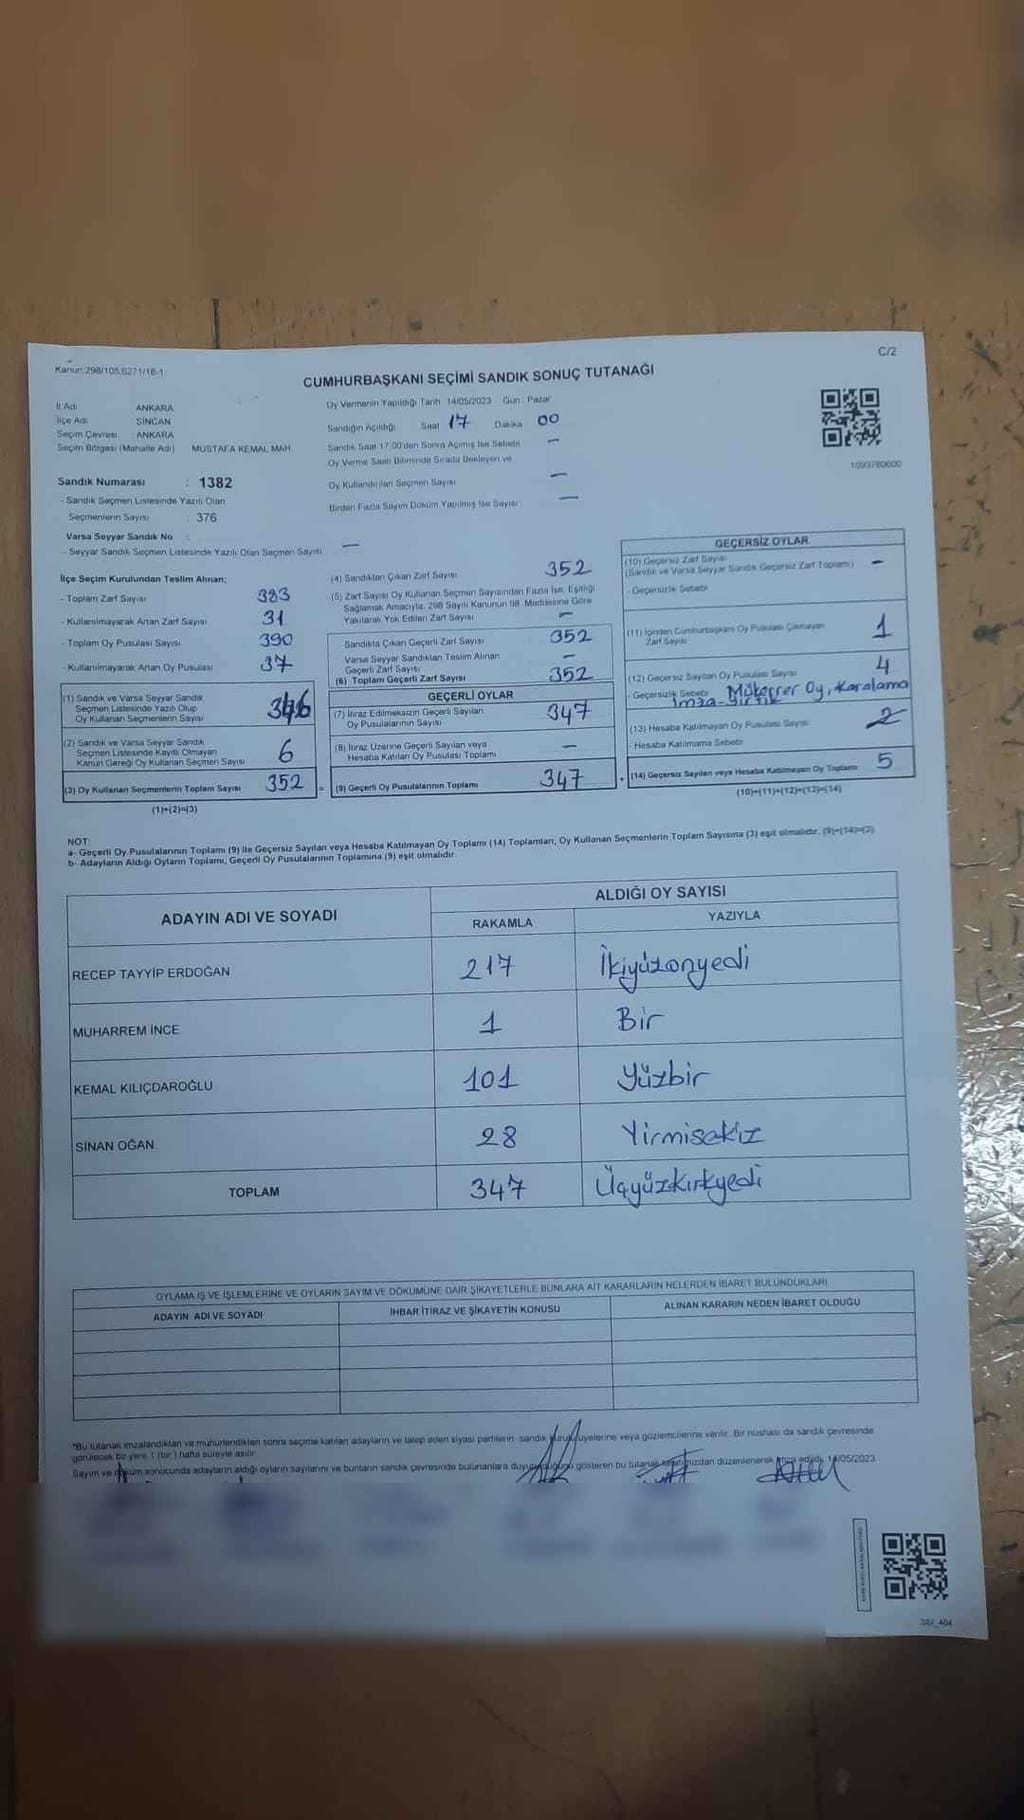 Kanun:298/105,6271/16-1
C/2
CUMHURBAŞKANI SEÇİMİ SANDIK SONUÇ TUTANAĞI
İl Adı ANKARA
İlçe Adı SİNCAN
Seçim Çevresi ANKARA
Seçim Bölgesi (Mahalle Adı) MUSTAFA KEMAL MAH.
Sandık Numarası : 1382
- Sandık Seçmen Listesinde Yazılı Olan
Seçmenlerin Sayısı : 376
Varsa Seyyar Sandık No :
- Seyyar Sandık Seçmen Listesinde Yazılı Olan Seçmen Sayısı —
Oy Vermenin Yapıldığı Tarih 14/05/2023 Gün : Pazar
Sandığın Açıldığı Saat 17 Dakika 00
Sandık Saat 17.00'den Sonra Açılmış İse Sebebi —
Oy Verme Saati Bitiminde Sırada Bekleyen ve
Oy Kullandırılan Seçmen Sayısı —
Birden Fazla Sayım Döküm Yapılmış İse Sayısı —
İlçe Seçim Kurulundan Teslim Alınan;
- Toplam Zarf Sayısı 383
- Kullanılmayarak Artan Zarf Sayısı 31
- Toplam Oy Pusulası Sayısı 390
- Kullanılmayarak Artan Oy Pusulası 37
(1) Sandık ve Varsa Seyyar Sandık
Seçmen Listesinde Yazılı Olup
Oy Kullanan Seçmenlerin Sayısı 346
(2) Sandık ve Varsa Seyyar Sandık
Seçmen Listesinde Kayıtlı Olmayan
Kanun Gereği Oy Kullanan Seçmen Sayısı 6
(3) Oy Kullanan Seçmenlerin Toplam Sayısı 352
(1)+(2)=(3)
(4) Sandıktan Çıkan Zarf Sayısı 352
(5) Zarf Sayısı Oy Kullanan Seçmen Sayısından Fazla İse, Eşitliği
Sağlamak Amacıyla, 298 Sayılı Kanunun 98. Maddesine Göre
Yakılarak Yok Edilen Zarf Sayısı —
Sandıkta Çıkan Geçerli Zarf Sayısı 352
Varsa Seyyar Sandıktan Teslim Alınan
Geçerli Zarf Sayısı —
(6) Toplam Geçerli Zarf Sayısı 352
GEÇERLİ OYLAR
(7) İtiraz Edilmeksizin Geçerli Sayılan
Oy Pusulalarının Sayısı 347
(8) İtiraz Üzerine Geçerli Sayılan veya
Hesaba Katılan Oy Pusulası Toplamı —
(9) Geçerli Oy Pusulalarının Toplamı 347
GEÇERSİZ OYLAR
(10) Geçersiz Zarf Sayısı
(Sandık ve Varsa Seyyar Sandık Geçersiz Zarf Toplamı) —
- Geçersizlik Sebebi
(11) İçinden Cumhurbaşkanı Oy Pusulası Çıkmayan
Zarf Sayısı 1
(12) Geçersiz Sayılan Oy Pusulası Sayısı 4
- Geçersizlik Sebebi Mükerrer Oy, Karalama
İmza-Yırtık
(13) Hesaba Katılmayan Oy Pusulası Sayısı
- Hesaba Katılmama Sebebi
(14) Geçersiz Sayılan veya Hesaba Katılmayan Oy Toplamı 5
(10)+(11)+(12)+(13)=(14)
NOT:
a- Geçerli Oy Pusulalarının Toplamı (9) ile Geçersiz Sayılan veya Hesaba Katılmayan Oy Toplamı (14) Toplamları, Oy Kullanan Seçmenlerin Toplam Sayısına (3) eşit olmalıdır. (9)+(14)=(3)
b- Adayların Aldığı Oyların Toplamı, Geçerli Oy Pusulalarının Toplamına (9) eşit olmalıdır.
ADAYIN ADI VE SOYADI
ALDIĞI OY SAYISI
RAKAMLA YAZIYLA
RECEP TAYYİP ERDOĞAN 217 İkiyüzonyedi
MUHARREM İNCE 1 Bir
KEMAL KILIÇDAROĞLU 101 Yüzbir
SİNAN OĞAN 28 Yirmisekiz
TOPLAM 347 Üçyüzkırkyedi
OYLAMA İŞ VE İŞLEMLERİNE VE OYLARIN SAYIM VE DÖKÜMÜNE DAİR ŞİKAYETLERLE BUNLARA AİT KARARLARIN NELERDEN İBARET BULUNDUKLARI
ADAYIN ADI VE SOYADI İHBAR İTİRAZ VE ŞİKAYETİN KONUSU ALINAN KARARIN NEDEN İBARET OLDUĞU
*Bu tutanak imzalandıktan ve mühürlendikten sonra seçime katılan adayların ve talep eden siyasi partilerin sandık kurulu üyelerine veya gözlemcilerine verilir. Bir nüshası da sandık çevresinde
görülecek bir yere 1 (bir) hafta süreyle asılır.
Sayım ve döküm sonucunda adayların aldığı oyların sayılarını ve bunların sandık çevresinde bulunanlara duyurulduğunu gösteren bu tutanak tarafımızdan düzenlenerek imza edildi. 14/05/2023